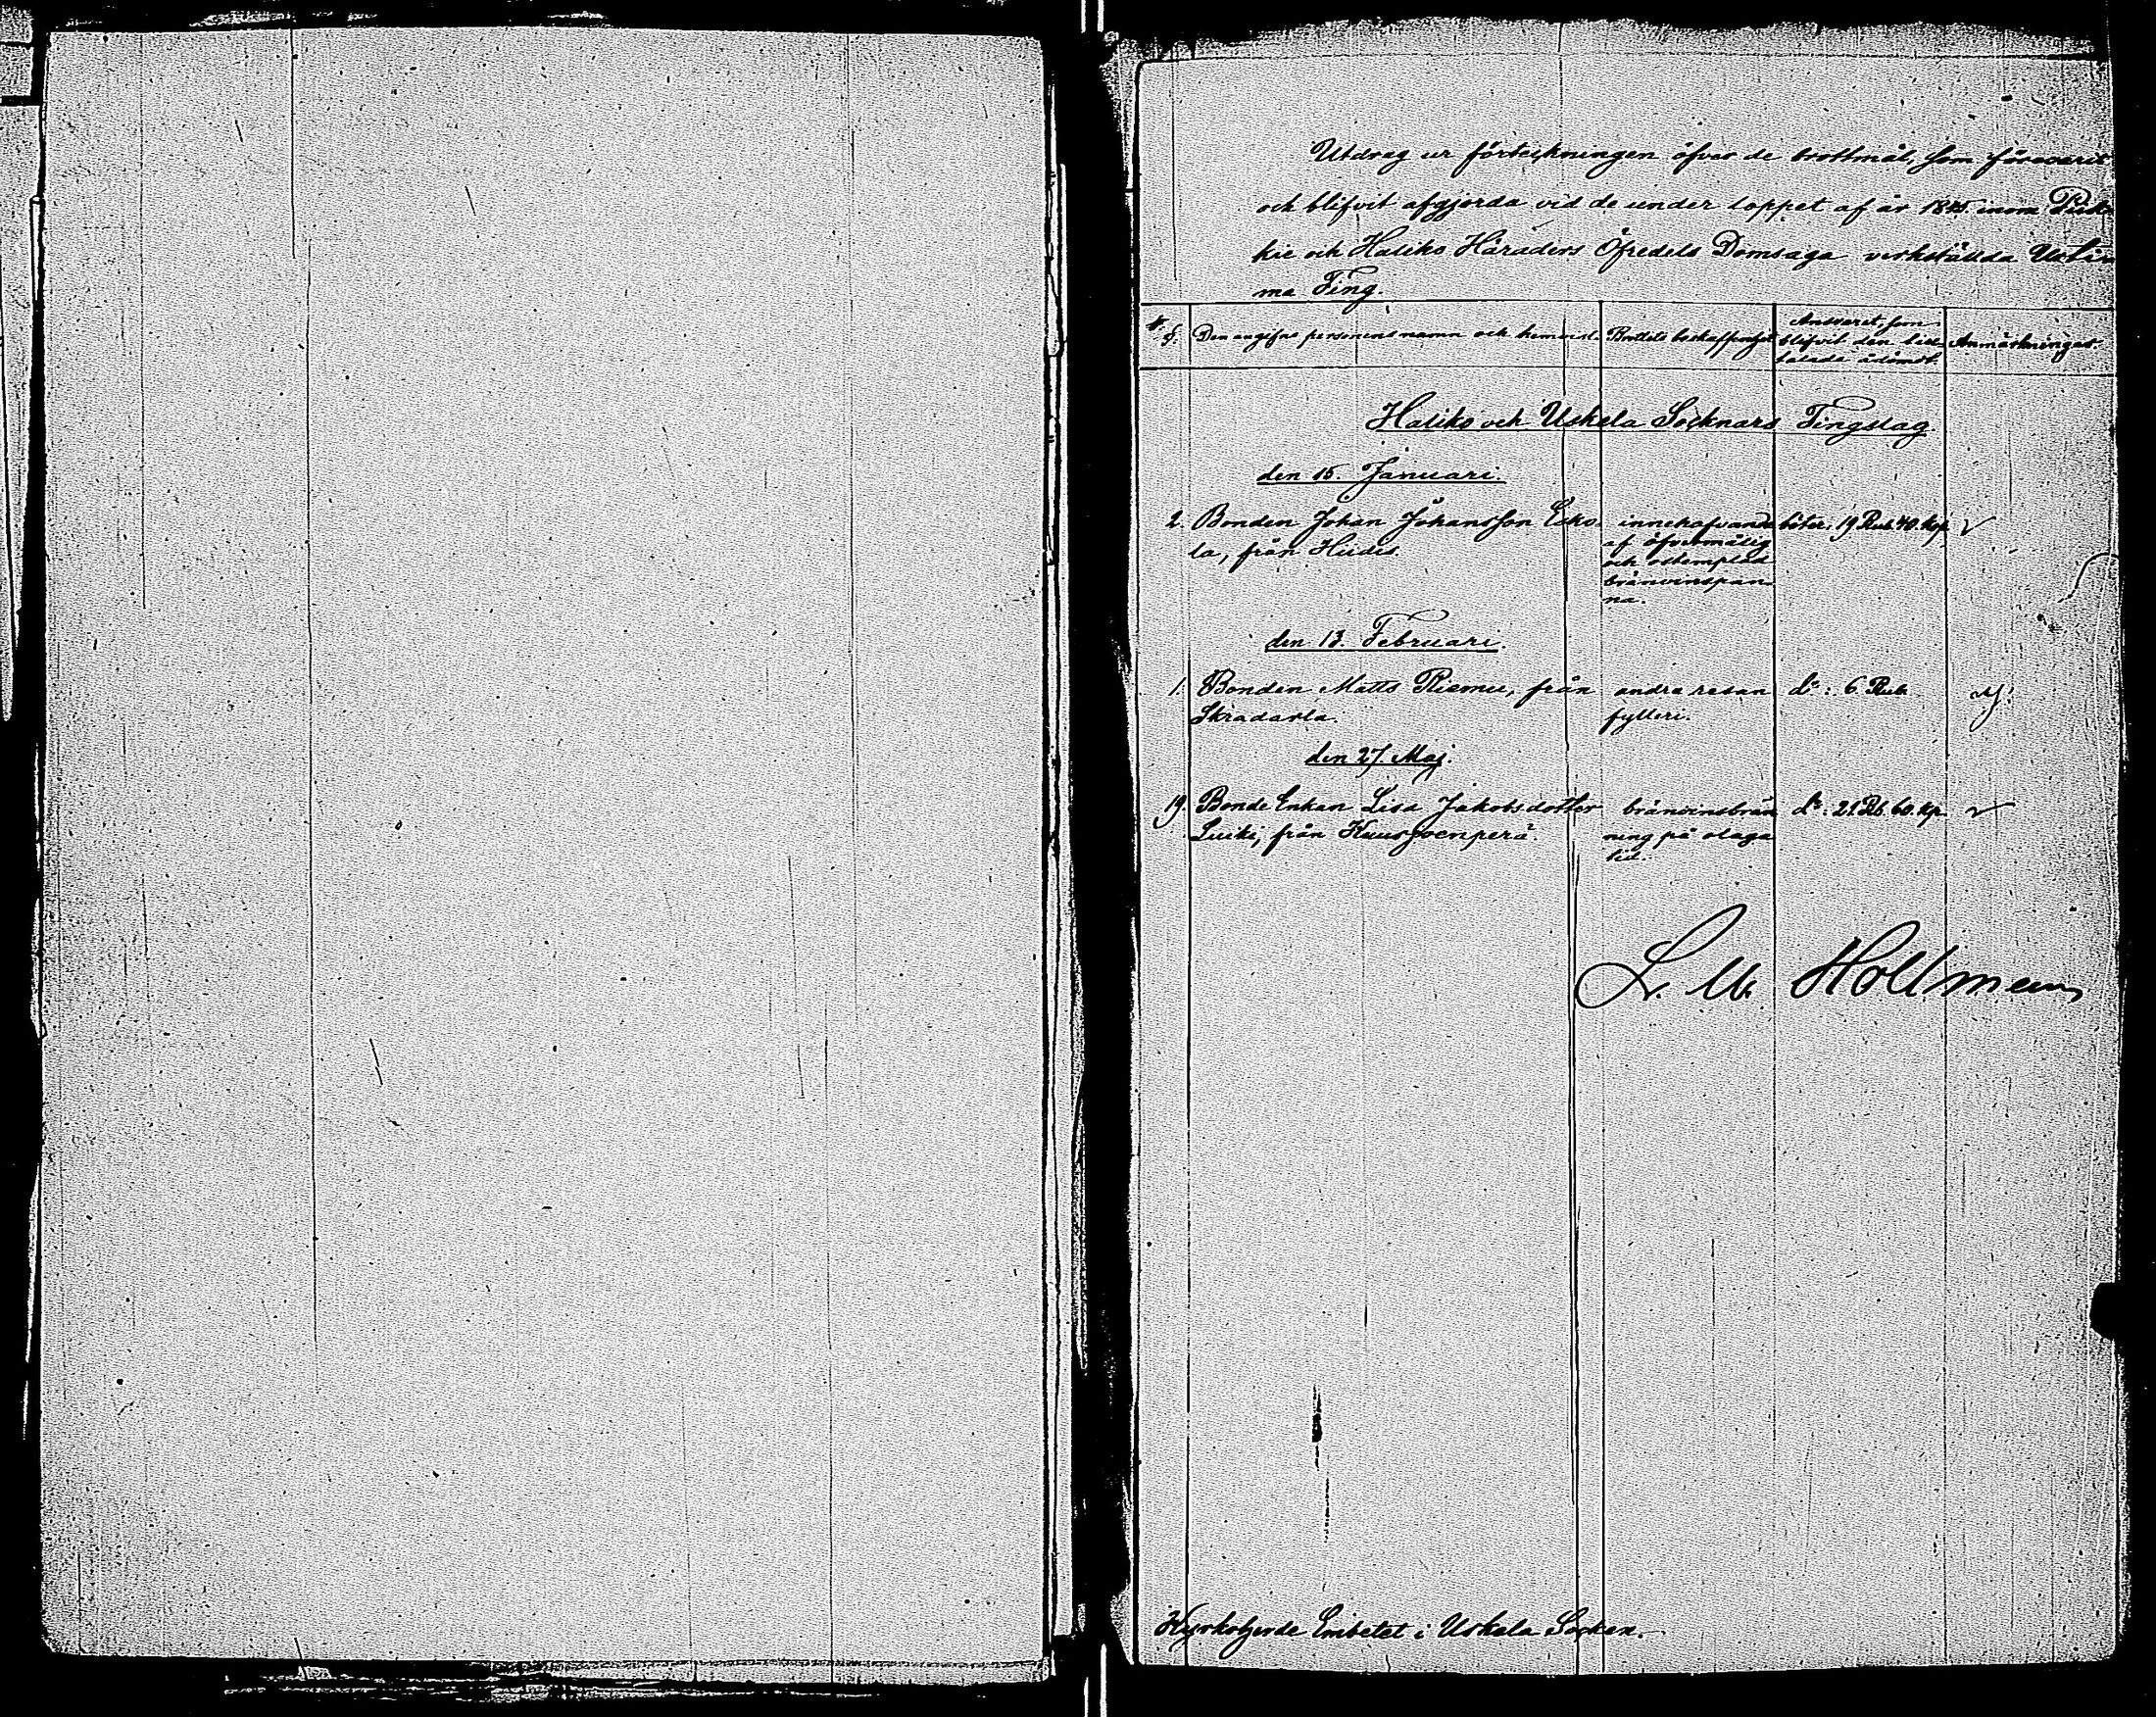 Utdrag ur förteckningen öfver de brottmål, som förevarit
och blifvit afgjorda vid de under loppet af år 1845. inom Pick-
kie och Haliko Häraders Öfredels Domsaga verkställda Urtin
ma Ting.
§. Den angifne personens namn och hemvist. Brottets beskaffenhet Ansvaret, som
blifvit den till-
talade ådömdt. Anmärkningar.
Haliko och Uskela Socknars Tingslag.
den 15. Januari.
2. Bonden Johan Johansson Esko- innehafvande böter: 19 Rub. 40. kop.
la, från Hiides. af öfvermålig
och ostemplad
bränvinspan-
na.
den 13. Februari.
1. Bonden Matts Riemu, från andra resan d:o: 6 Rub.
Skradarla. fylleri.
den 27. Maj.
19. Bonde Enkan Lisa Jakobsdotter bränvinsbrän d:o: 21 Rb. 60. kp.
från Kuusjoenperä. ning på olaga
tid.
Hollmen
Kyrkoherde Embetet i Uskela Socken.